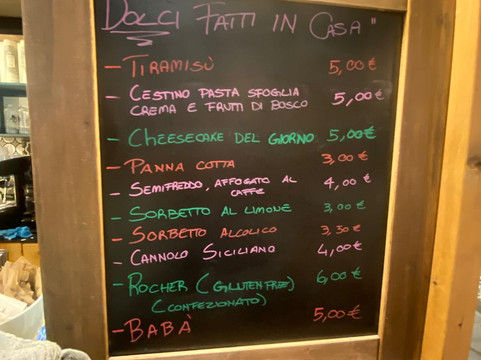 DOLCI FATTI IN CASA"
- TIRAMISÙ 5,00€
- CESTINO PASTA SFOGLIA
CREMA E FRUTTI DI BOSCO 5,00€
- CHEESECAKE DEL GIORNO 5,00€
- PANNA COTTA 3,00€
- SEMIFREDDO, AFFOGATO AL
CAFFÈ 4,00€
- SORBETTO AL LIMONE 3,00€
- SORBETTO ALCOLICO 3,50€
- CANNOLO SICILIANO 4,00€
- ROCHER (GLUTEN FREE) 6,00€
(CONFEZIONATO)
- BABÀ 5,00€